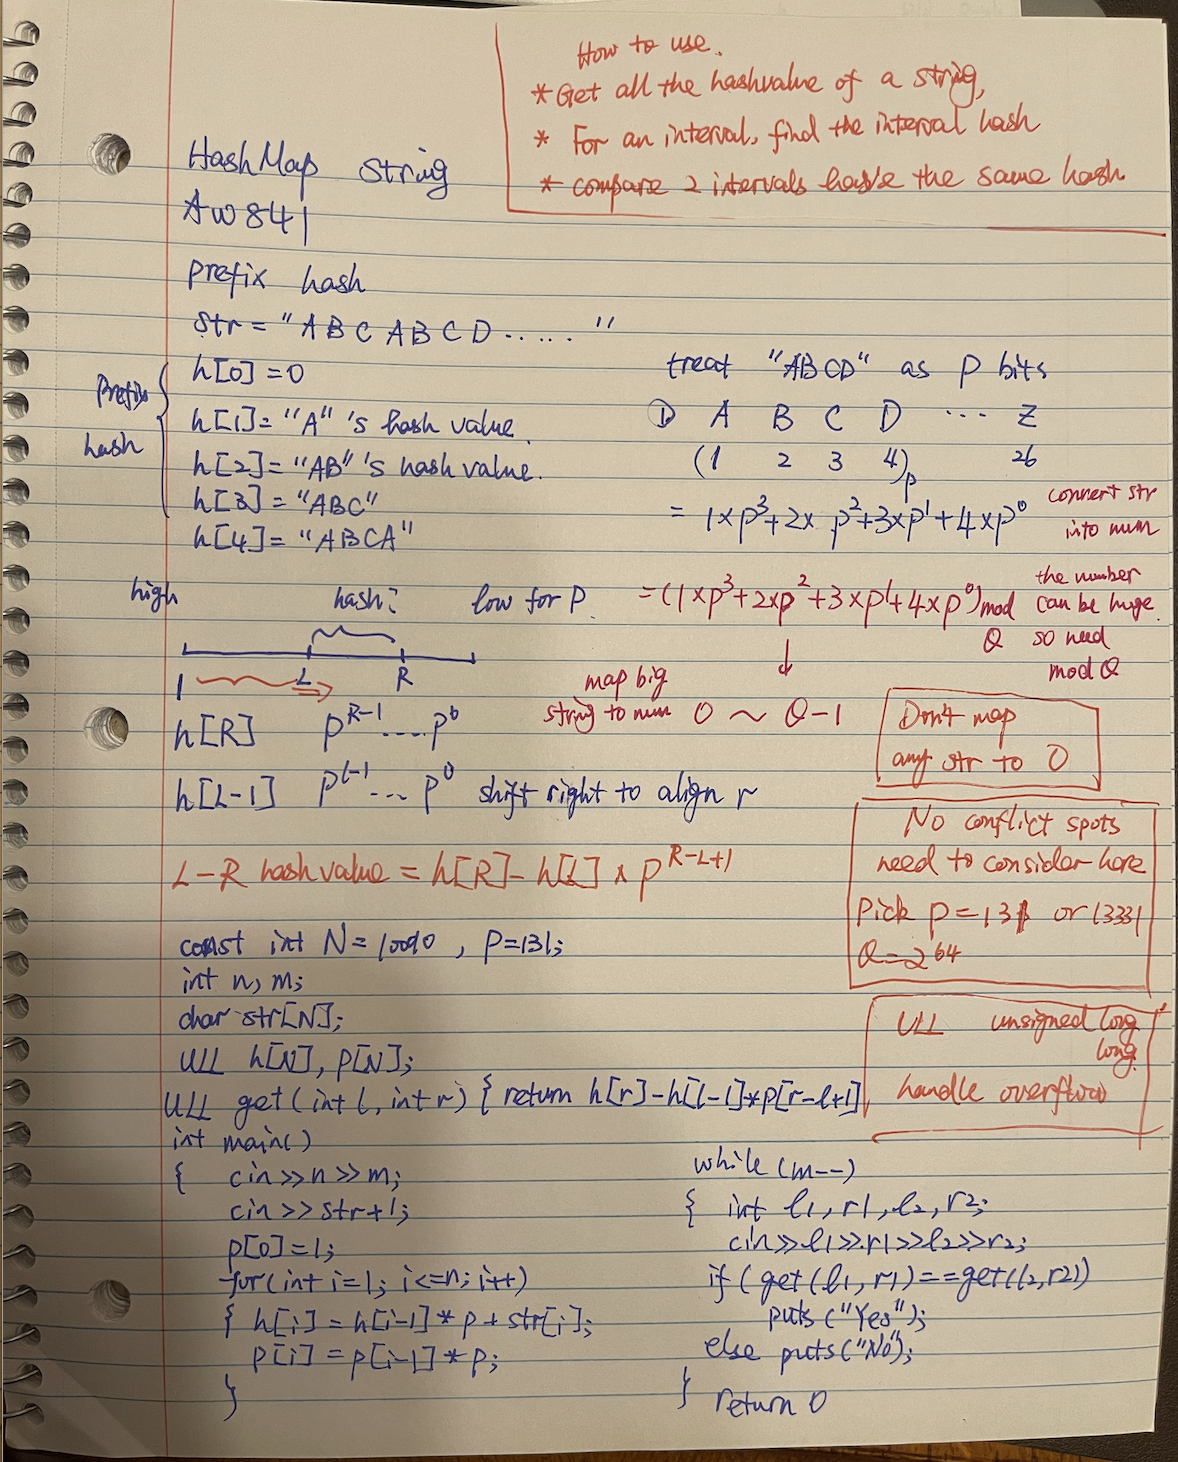 How to use.
* Get all the hashvalue of a string,
* For an interval, find the interval hash
* compare 2 intervals have the same hash
HashMap String
AW841
prefix hash
str = "ABCABCD......"
Prefix hash
h[0]=0
h[1]="A"'s hash value.
h[2]="AB"'s hash value.
h[3]="ABC"
h[4]="ABCA"
treat "ABCD" as P bits
① A B C D ... Z
(1 2 3 4)p 26
= 1×p³+2×p²+3×p¹+4×p⁰
convert str
into num
=(1×p³+2×p²+3×p¹+4×p⁰) mod Q
the number
can be huge
so need
mod Q
↓
map big
string to num 0 ~ Q-1
Don't map
any str to 0
high hash? low for P.
1 L R
h[R] P^R-1 ..... P⁰
h[L-1] P^L-1 ... P⁰ shift right to align r
No conflict spots
need to consider here
Pick P=131 or 13331
Q=2^64
L-R hashvalue = h[R]-h[L] × P^R-L+1
ULL unsigned long
long
handle overflow
const int N= 10010, P=131;
int n, m;
char str[N];
ULL h[N], p[N];
ULL get(int l, int r) { return h[r]-h[l-1]*p[r-l+1]
int main()
{ cin>>n>>m;
cin>>str+1;
p[0]=1;
for(int i=1; i<=n; i++)
{ h[i]=h[i-1]*p+str[i];
p[i]=p[i-1]*p;
}
while(m--)
{ int l1, r1, l2, r2;
cin>>l1>>r1>>l2>>r2;
if(get(l1, r1)==get(l2,r2))
puts("Yes");
else puts("No");
} return 0